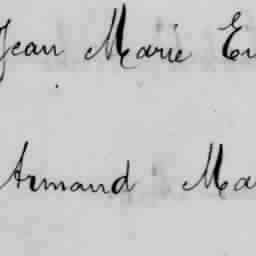 Jean Marie Eu
Armand Ma